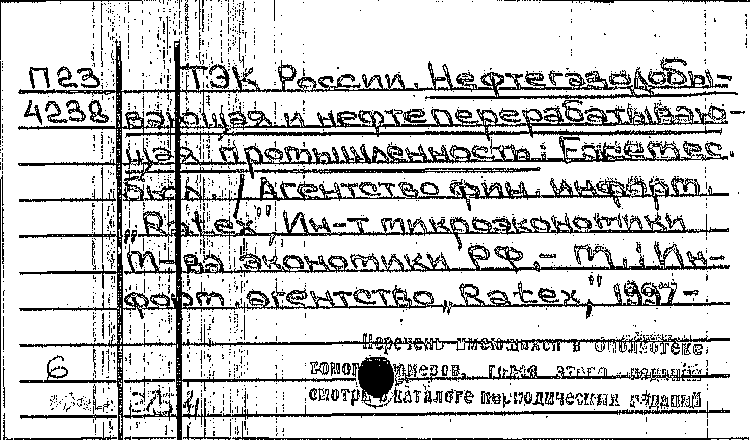 П23 ТЭК России. Нефтегазодобы-
4238 вающая и нефтеперерабатываю-
щая промышленность: Ежемес.
бюл. / Агентство фин. информ.
„Ratex", Ин-т микроэкономики
М-ва экономики РФ.- М.: Ин-
форм. агентство „Ratex", 1997-
Перечень имеющихся в библиотеке
6
томов, номеров, годов этого издания
смотри в каталоге периодических изданий